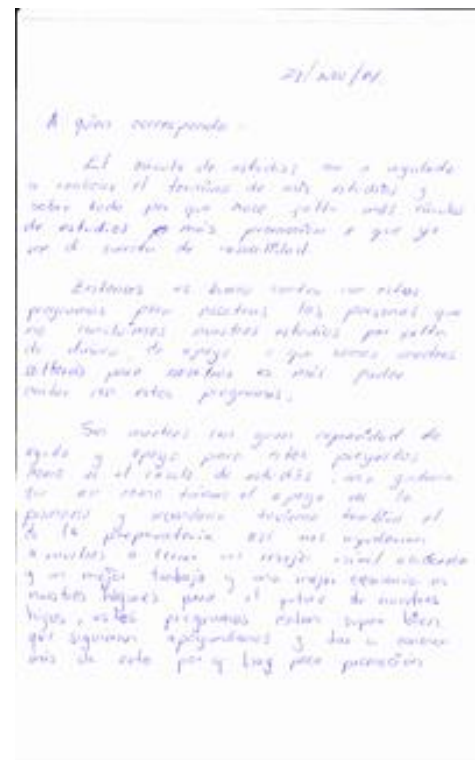 A quien corresponda:
El circulo de estudios me a ayudado
a realizar el termino de mis estudios y
sobre todo por que hace falta más circulos
de estudios más promoción a que yo
por el
Entonces es bueno contar con estos
programas para nosotras las personas que
no concluimos nuestros estudios por falta
de dinero, de apoyo o que somos madres
solteras para nosotras es más poder
contar con estos programas.
Son maestros con gran capacidad de
ayuda y apoyo para estos proyectos
como es el circulo de estudios, me gustaria
que asi como tienen el apoyo de la
primaria y secundaria tuvieran tambien el
de la preparatoria asi nos ayudarian
a muchas a tener un mejor nivel
y un mejor trabajo y una mejor economia en
nuestros hogares para el futuro de nuestros
hijos, estos programas estan super bien
que siguieran apoyandonos y dar a conocer
más de esto por q hay poca promoción